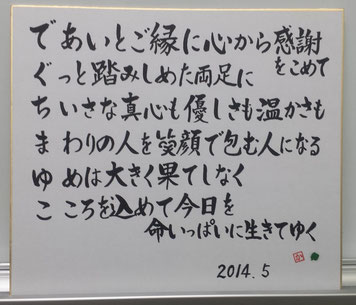 であいとご縁に心から感謝
をこめて
ぐっと踏みしめた両足に
ちいさな真心も優しさも温かさも
まわりの人を笑顔で包む人になる
ゆめは大きく果てしなく
こころを込めて今日を
命いっぱいに生きてゆく
2014.5